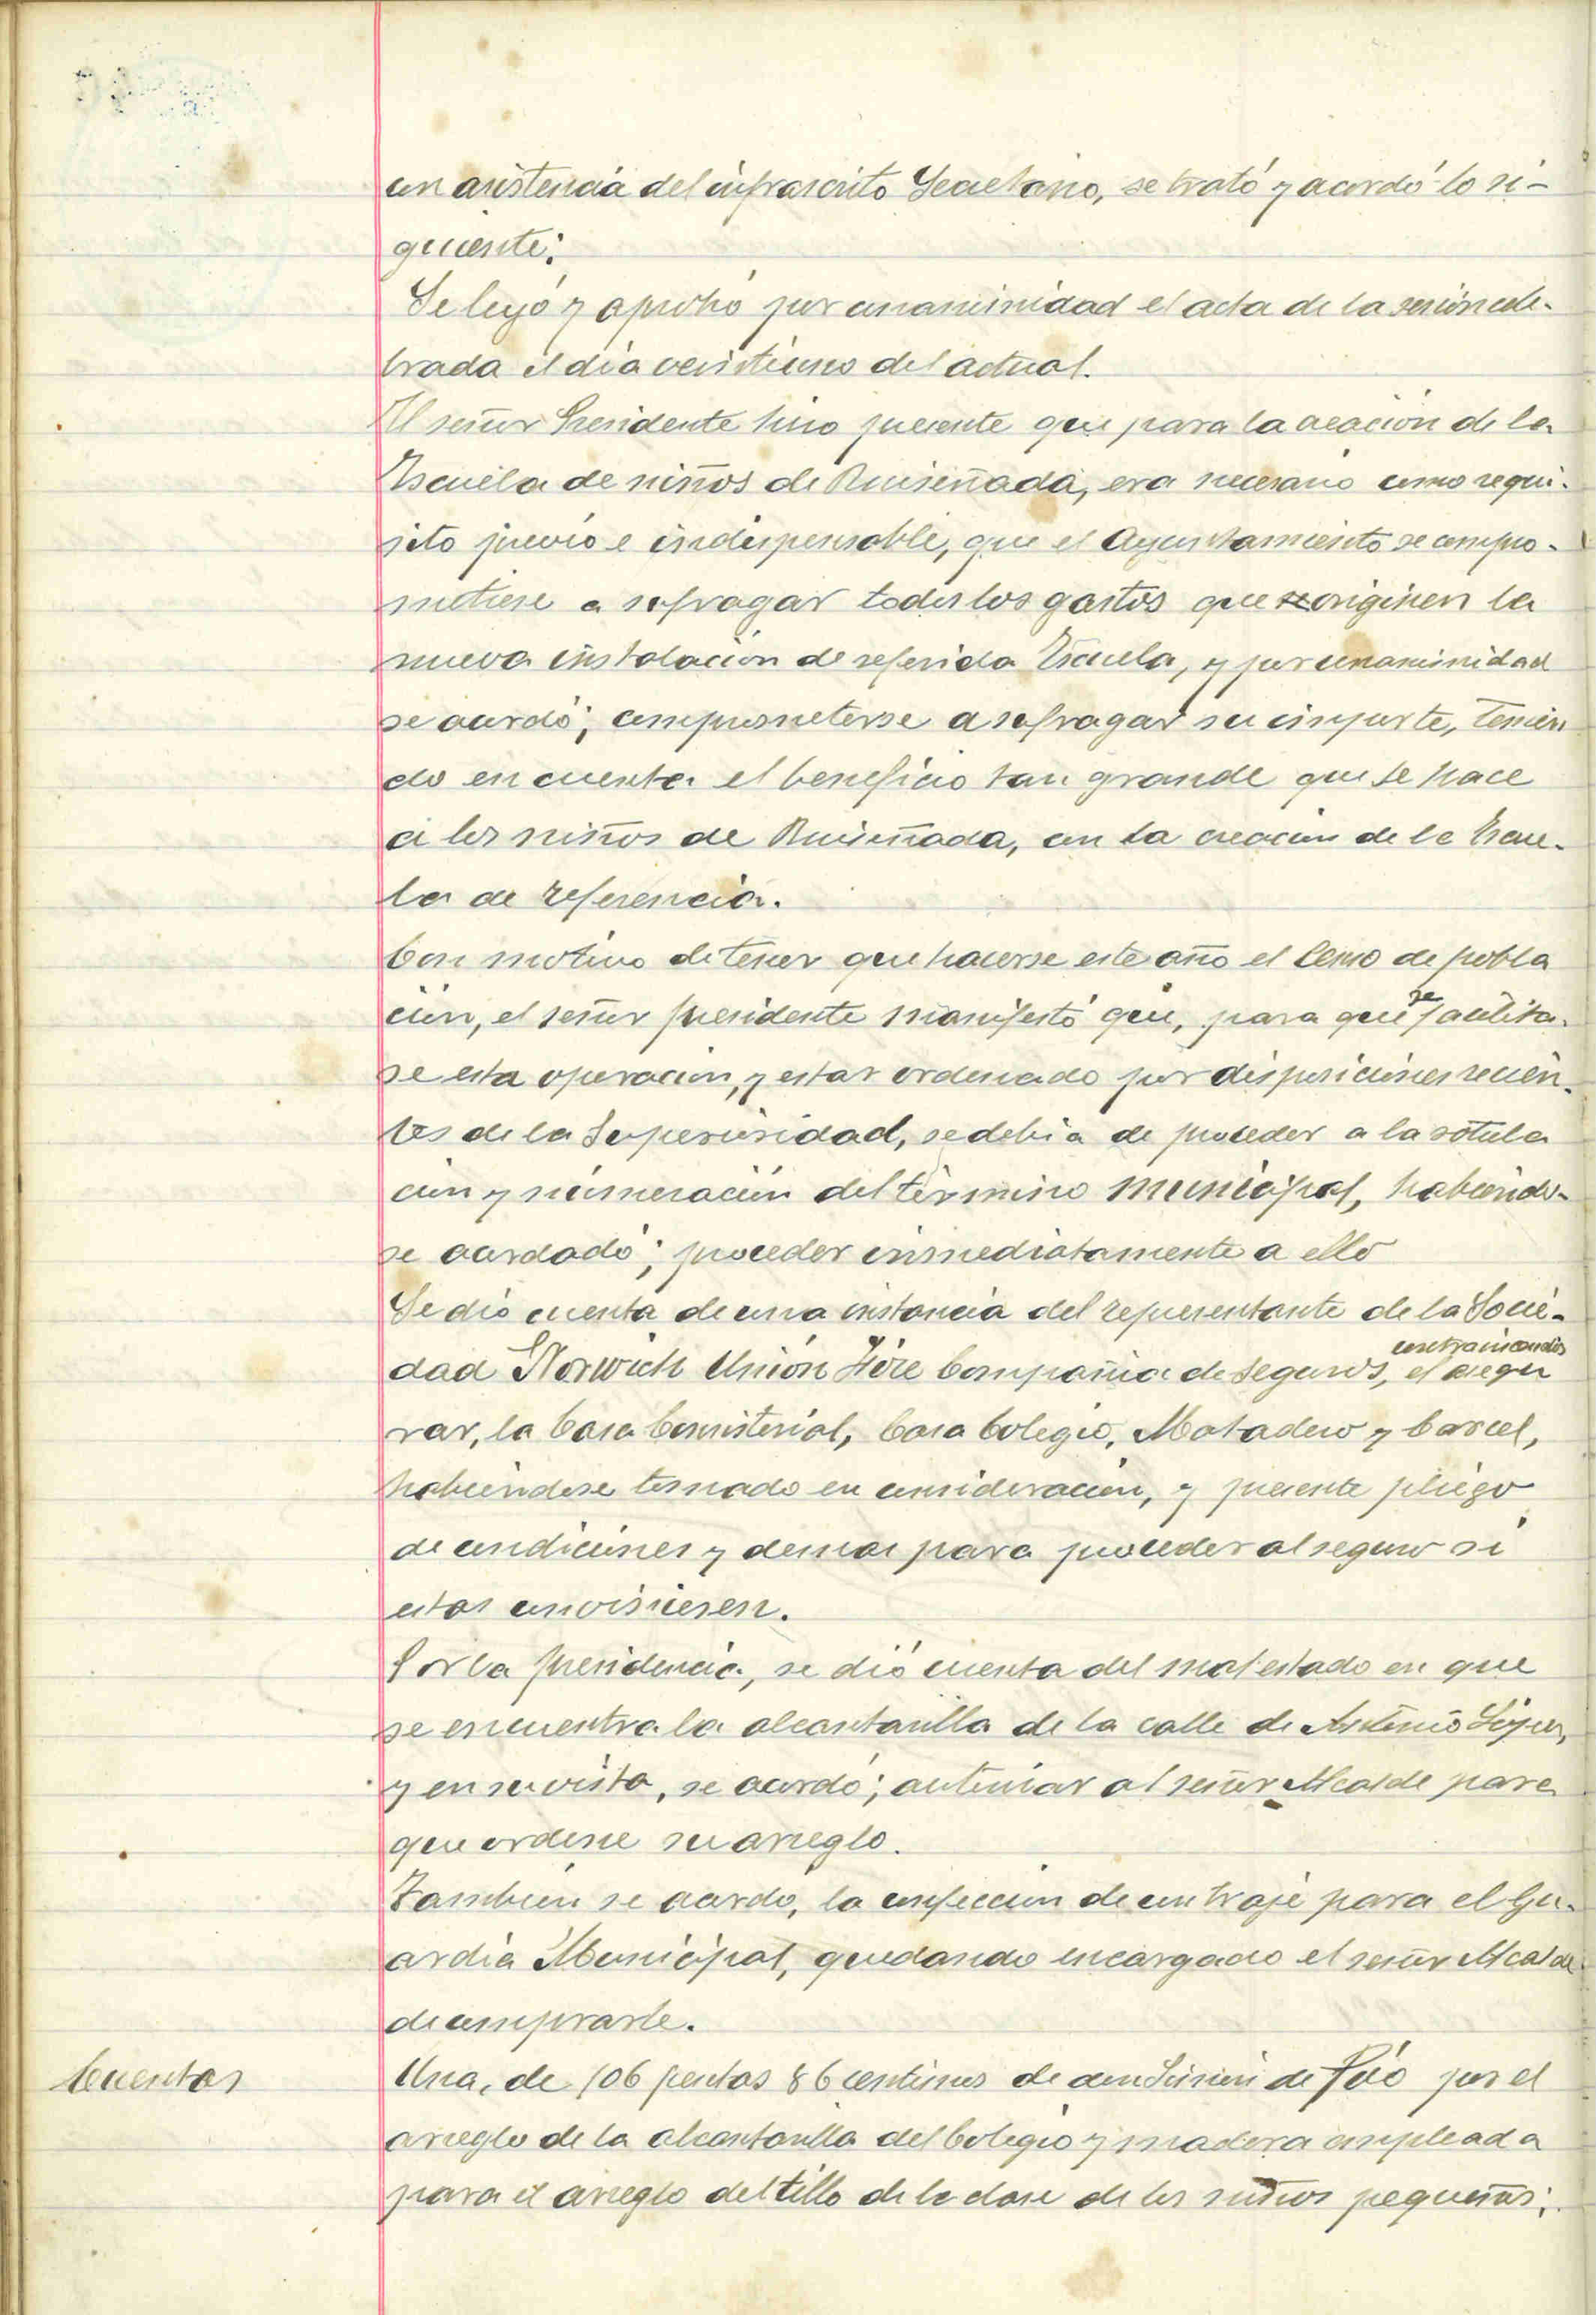 con asistencia del infrascrito Secretario, se trató y acordó lo si-
guiente:
Se leyó y aprobó por unanimidad el acta de la sesión cele-
brada el dia veintiuno del actual.
El señor Presidente hizo presente que para la creación de la
Escuela de niños de Ruiseñada, era necesario como requi-
sito previo e indispensable, que el Ayuntamiento se compro-
metiese a sufragar todos los gastos que se originen la
nueva instalación de referida Escuela, y por unanimidad
se acordó; comprometerse a sufragar su importe, tenien
do en cuenta el beneficio tan grande que se hace
a los niños de Ruiseñada, con la creación de la Escue-
la de referencia.
Con motivo de tener que hacerse este año el Censo de pobla
ción, el señor presidente manifestó que, para que se facilita-
se esta operación, y estar ordenado por disposiciones recien-
tes de la Superioridad, se debia de proceder a la rotula
ción y numeración del término municipal, habiendo-
se acordado; proceder inmediatamente a ello
Se dió cuenta de una instancia del representante de la Socie-
dad Norwich Unión Fire Compañia de Seguros, el asegu
rar, la Casa Consistorial, Casa Colegio, Matadero y Carcel,
habiendose tomado en consideración, y presente pliego
de condiciones y demas para proceder al seguro si
estas conviniesen.
Por la Presidencia, se dió cuenta del mal estado en que
se encuentra la alcantarilla de la calle de Antonio López,
y en su vista, se acordó; autorizar al señor Alcalde para
que ordene su arreglo.
Tambien se acordo, la confección de un traje para el Gu-
ardia Municipal, quedando encargado el señor Alcalde
de comprarle.
Cuentas
Una, de 106 pesetas 86 centimos de por el
arreglo de la alcantarilla del Colegio y madera empleada
para el arreglo del tillo de la clase de los niños pequeños;